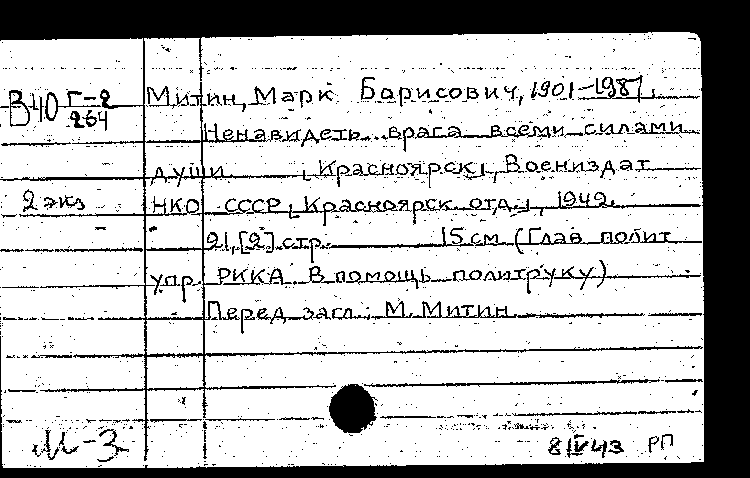 В40 Г-2
264
Митин, Марк Борисович, 1901-1987.
Ненавидеть врага всеми силами
души. [Красноярск], Воениздат
2 экз
НКО СССР [Красноярск. отд.], 1942.
21,[2] стр. 15 см (Глав полит
упр. РККА В помощь политруку)
Перед загл.: М. Митин
М-3
8/IV43 РП